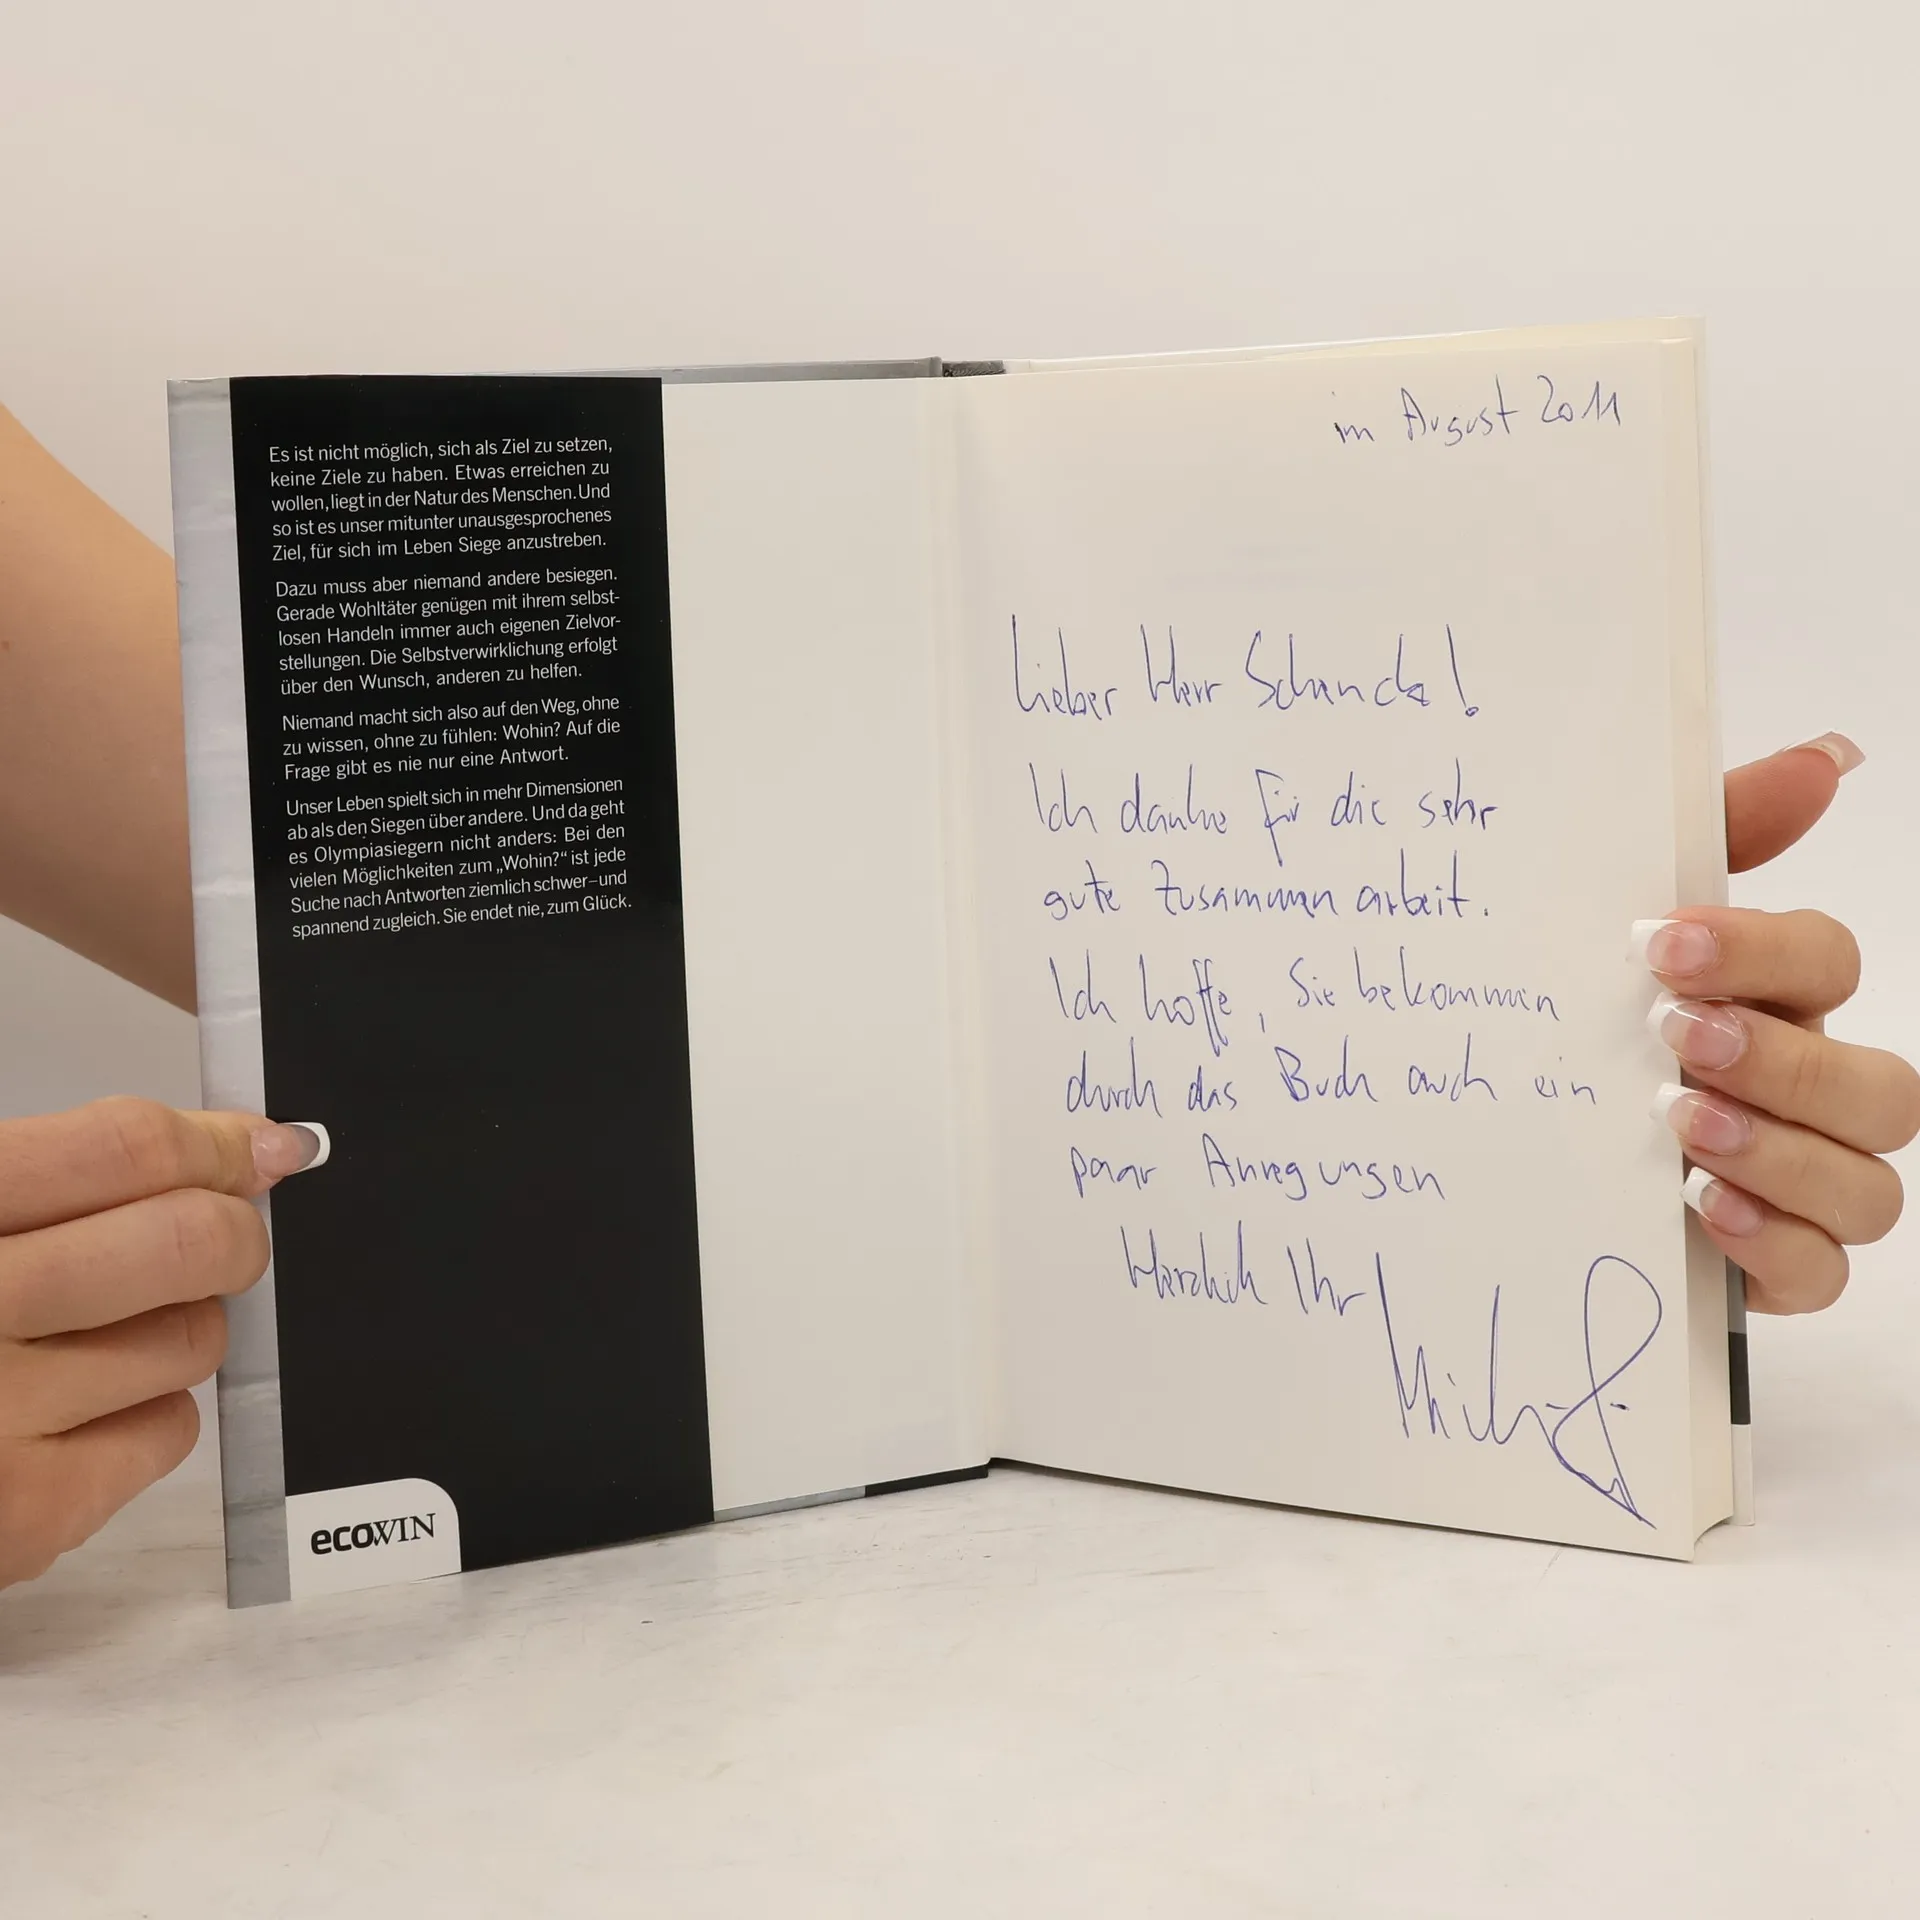 Es ist nicht möglich, sich als Ziel zu setzen,
keine Ziele zu haben. Etwas erreichen zu
wollen, liegt in der Natur des Menschen. Und
so ist es unser mitunter unausgesprochenes
Ziel, für sich im Leben Siege anzustreben.
Dazu muss aber niemand andere besiegen.
Gerade Wohltäter genügen mit ihrem selbst-
losen Handeln immer auch eigenen Zielvor-
stellungen. Die Selbstverwirklichung erfolgt
über den Wunsch, anderen zu helfen.
Niemand macht sich also auf den Weg, ohne
zu wissen, ohne zu fühlen: Wohin? Auf die
Frage gibt es nie nur eine Antwort.
Unser Leben spielt sich in mehr Dimensionen
ab als den Siegen über andere. Und da geht
es Olympiasiegern nicht anders: Bei den
vielen Möglichkeiten zum „Wohin?“ ist jede
Suche nach Antworten ziemlich schwer – und
spannend zugleich. Sie endet nie, zum Glück.
ecoWIN
im August 2011
Lieber Herr !
Ich danke für die sehr
gute Zusammenarbeit.
Ich hoffe, Sie bekommen
durch das Buch auch ein
paar Anregungen
Herzlich Ihr